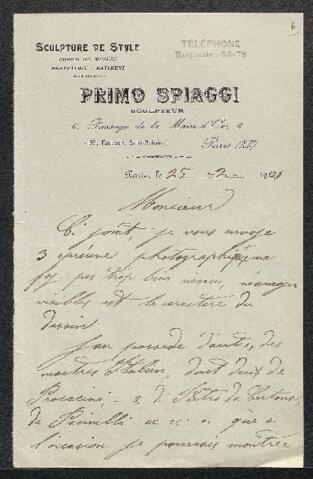 6
SCULPTURE DE STYLE
TÉLÉPHONE
Roquette: 58-78
PRIMO SPIAGGI
SCULPTEUR
6, Passage de la Main d'Or, 6
Paris (XIe)
Paris, le 25 2 190
Monsieur
Ci joint, je vous envoye
3 épreuve photographique, ma
pas trop bien
est le caractère du
dessin
J'en possede d'autres, des
maitres Italien, dont deux de
Procacini, 2 di Pietro da Cortona,
de Pannelli que a
l'ocasion je pourrais montrer